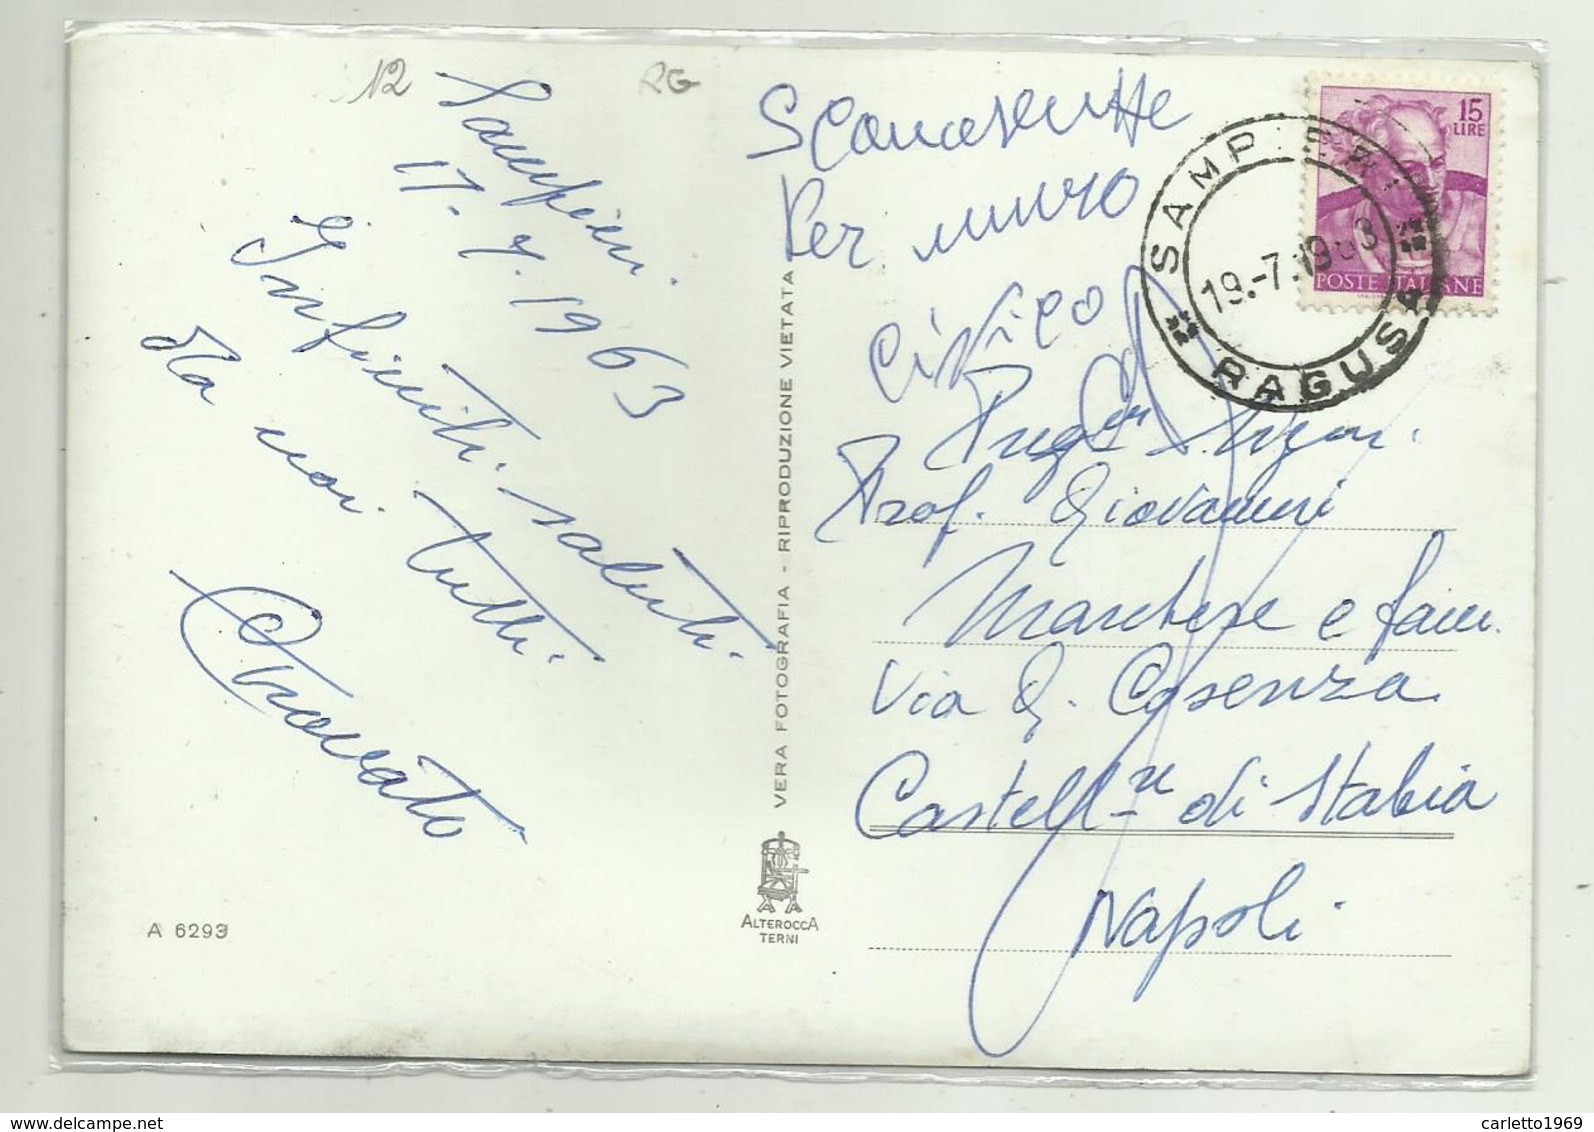 12
RG
Sampieri
17.7.1963
Infiniti saluti
da noi tutti
Per nuro
civico
Preg. Sigor.
Prof. Giovanni
Marchese e fam.
Via G. Cosenza
Castell-re di Stabia
Napoli
15
LIRE
POSTE ITALIANE
SAMPIERI
19.-7.1963
RAGUSA
VERA FOTOGRAFIA - RIPRODUZIONE VIETATA
ALTEROCCA
TERNI
A 6293
carletto1969